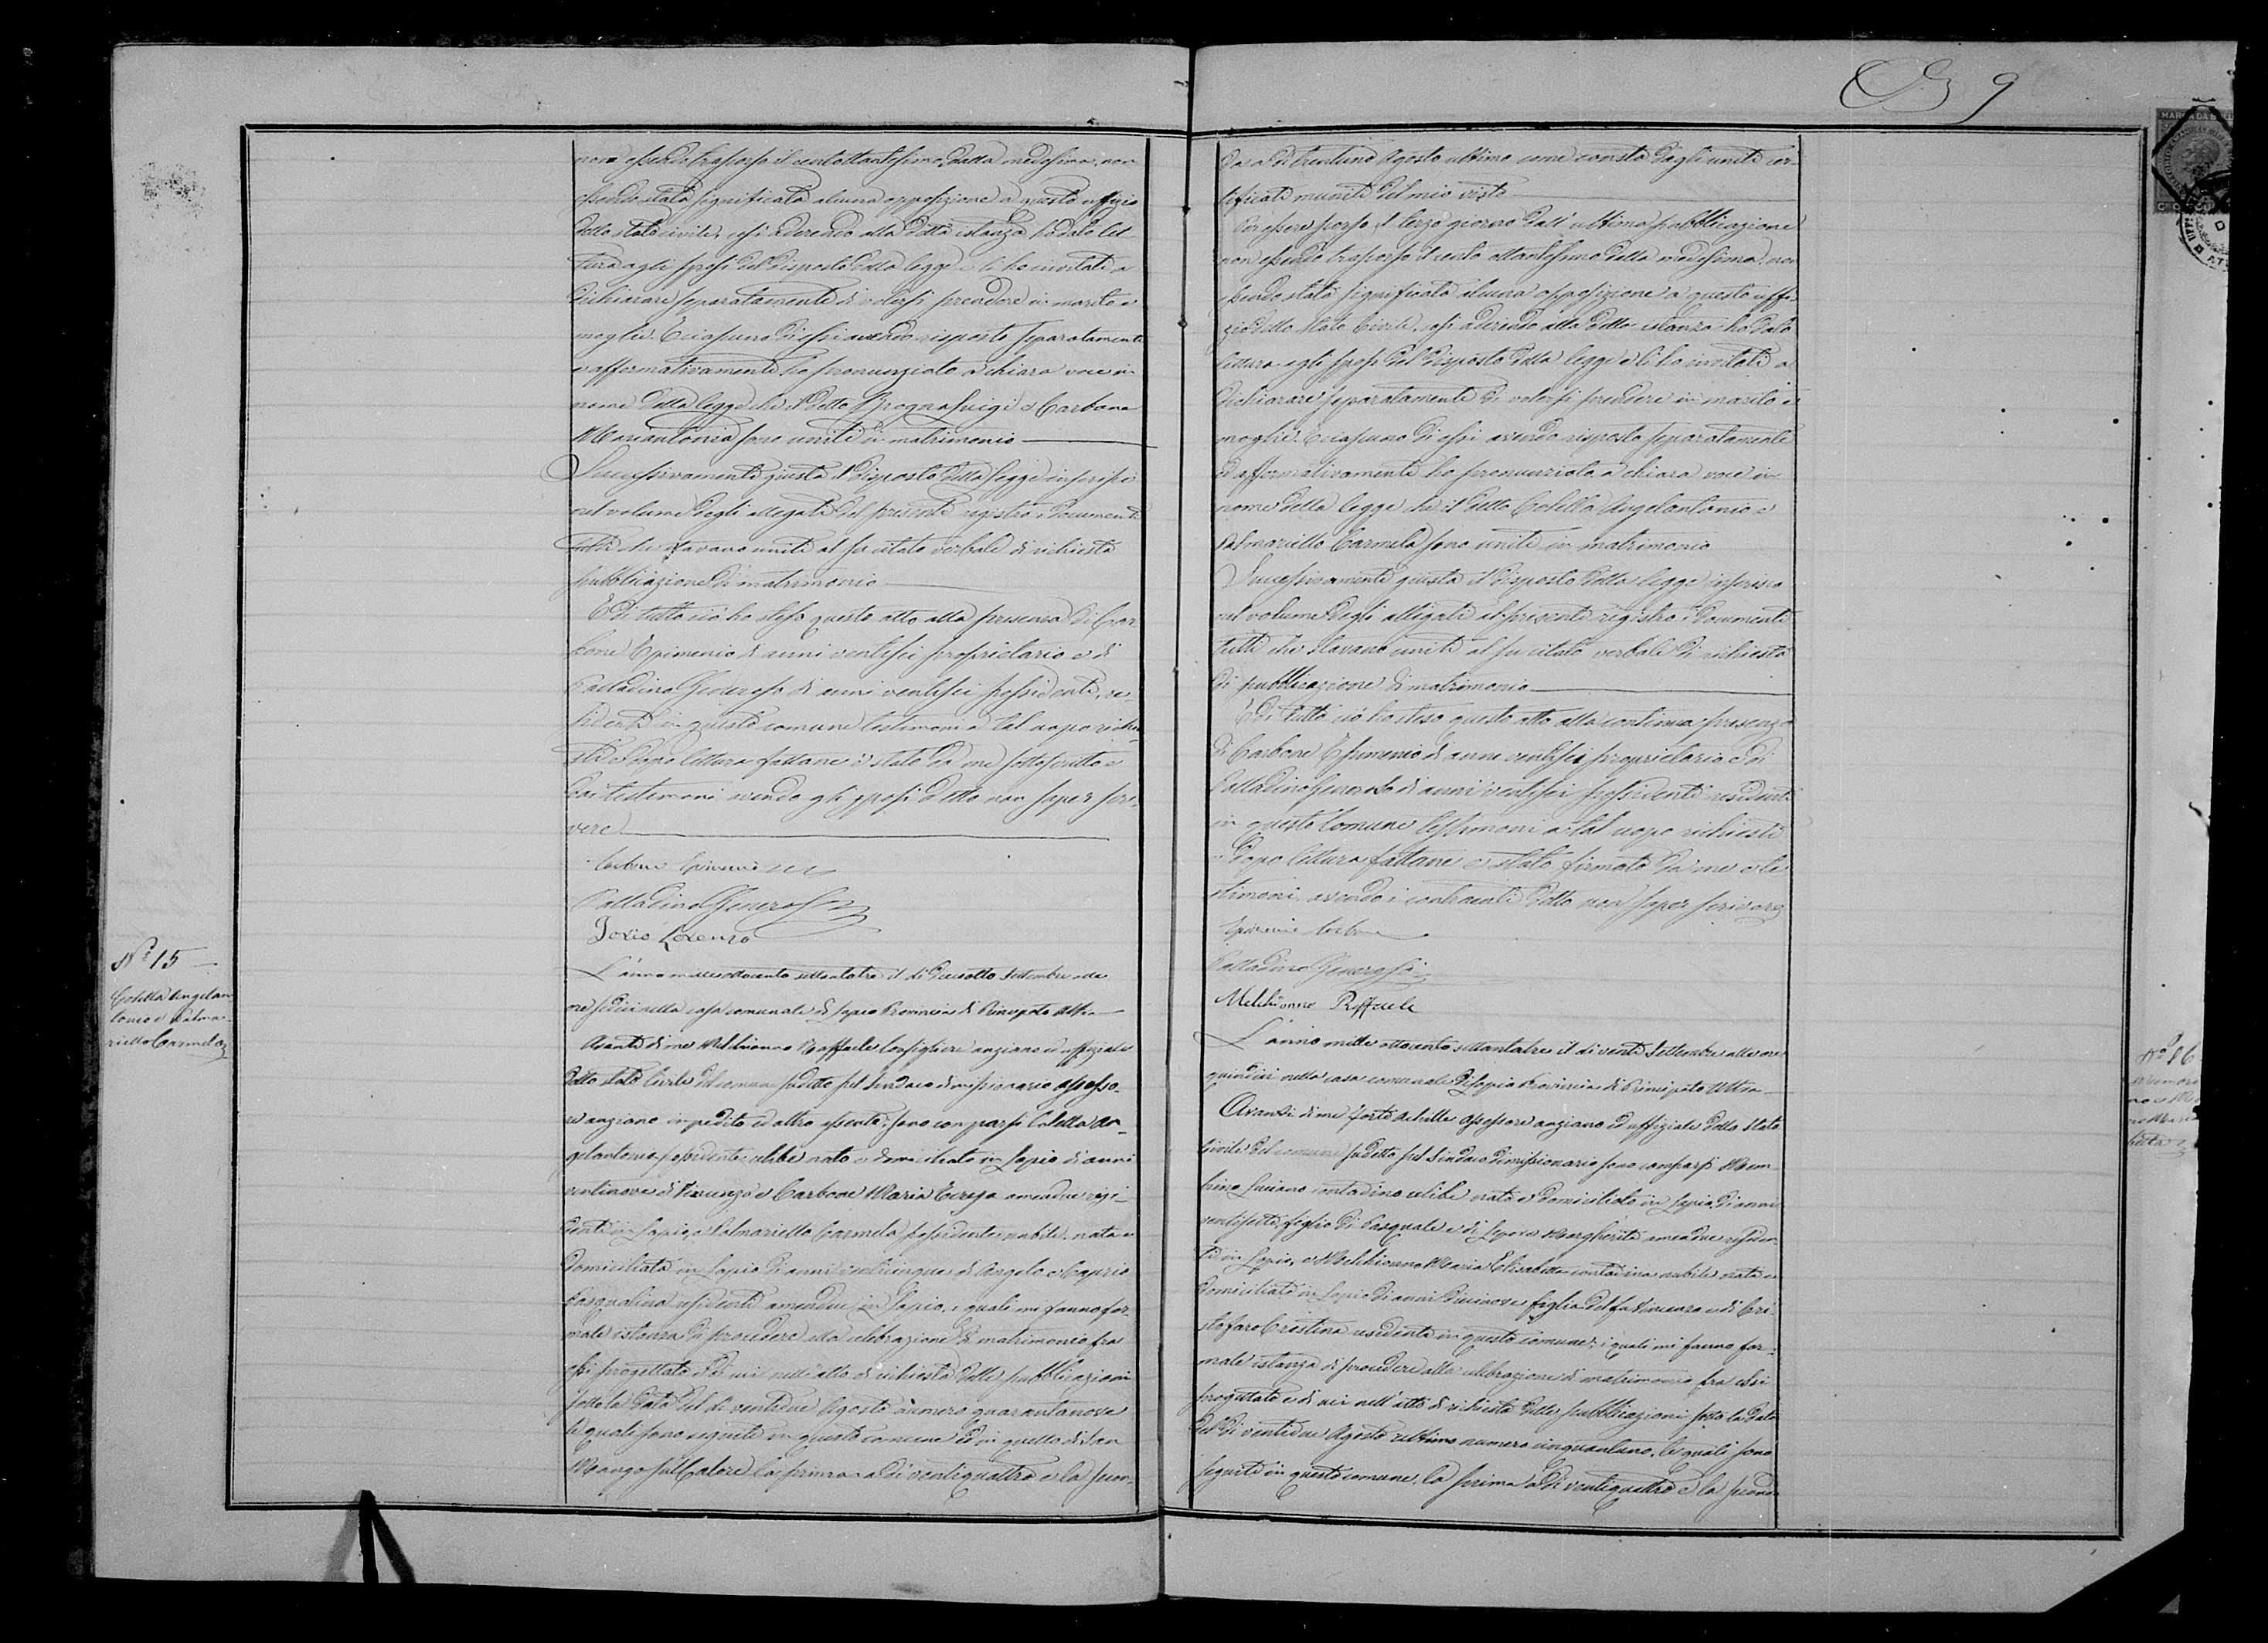 non essendo trasporso il centottantesimo dalla medesima, non
essendo stata significata alcuna opposizione a questo uffizio
dello stato civile, così aderendo alla detta istanza ho dato let-
tura agli sposi del disposto della legge e li ho invitati a
dichiarare separatamente di volersi prendere in marito e
moglie. E ciascuno di essi avendo risposto separatamente
e affermativamente ho pronunziato a chiara voce in
nome della legge che il detto Brogna Luigi e Carbone
Mariantonia sono uniti in matrimonio
Successivamente giusta il disposto della legge inserisco
nel volume degli allegati del presente registro i documenti
tutti che stavano uniti al su citato verbale di richiesta
pubblicazione di matrimonio
E di tutto ciò ho steso questo atto alla presenza di Car-
bone Epimenio di anni ventisei proprietario e di
Palladino Generoso di anni ventisei possidente, re-
sidenti in questo comune testimoni a tal uopo richie-
sti e dopo lettura fattane è stato da me sottoscritto e
dai testimoni avendo gli sposi detto non saper scri-
vere
Carbone Epimenio
Palladino Generoso
Iorio Lorenzo
Nº 15
Colella Angelan
tonio e Palma-
riello Carmela
L'anno mille ottocento settantatre il dì dieciotto Settembre alle
ore sedici nella casa comunale di Lapio Provincia di Principato Ultra
Avanti di me Melchionno Raffaele Consigliere anziano ed uffiziale
dello stato Civile del comune sudetto pel Sindaco dimissionario assesso-
re anziano impedito ed altro assente; sono comparsi Colella An-
gelantonio possidente celibe nato e domiciliato in Lapio di anni
ventinove di Vincenzo e Carbone Maria Teresa amendue resi-
denti in Lapio, e Palmariello Carmela possidente nubile, nata e
domiciliata in Lapio di anni venticinque di Angelo e Caprio
Pasqualina residenti amendue in Lapio, i quali mi fanno for-
male istanza di procedere alla celebrazione di matrimonio fra
essi progettato e di cui nell'atto di richiesta delle pubblicazioni
sotto la data del dì ventidue Agosto numero quarantanove
le quali sono seguite in questo comune ed in quello di San
Mango sul Calore la prima a dì ventiquattro e la secon-
9
MARCA DA BOLLO
da a dì trentuno Agosto ultimo come consta dagli uniti cer-
tificati muniti del mio visto
Per essere scorso il terzo giorno dall'ultima pubblicazione
non essendo trasporso il cento ottantesimo dalla medesima, non
essendo stata significata alcuna opposizione a questo uffi-
zio dello Stato Civile, così aderendo alla detta istanza ho dato
lettura agli sposi del disposto della legge e li ho invitati a
dichiarare separatamente di volersi prendere in marito e
moglie. E ciascuno di essi avendo risposto separatamente
ed affermativamente ho pronunziato a chiara voce in
nome della legge che il detto Colella Angelantonio e
Palmariello Carmela sono uniti in matrimonio
Successivamente giusta il disposto della legge inserisco
nel volume degli allegati al presente registro i documenti
tutti che stavano uniti al su citato verbale di richiesta
di pubblicazione di matrimonio
E di tutto ciò ho steso questo atto alla continua presenza
di Carbone Epimenio di anni ventisei proprietario e di
Palladino Generoso di anni ventisei possidente residenti
in questo Comune testimoni a tal uopo richiesti
e dopo lettura fattane è stato firmato da me e te
stimoni, avendo i contraenti detto non saper scrivere
Epimenio Carbone
Palladino Generoso
Melchionno Raffaele
L'anno mille ottocento settantatre il dì venti Settembre alle ore
quindici nella casa comunale di Lapio Provincia di Principato Ultra
Avanti di me Forte Achille Assessore anziano ed uffiziale dello Stato
Civile del comune sudetto pel Sindaco dimissionario sono comparsi Mem
brino Luciano contadino celibe nato e domiciliato in Lapio, di anni
ventisette, figlio di Pasquale e di Lepore Margherita amendue residen-
ti in Lapio, e Melchionno Maria Elisabetta contadina nubile nata e
domiciliata in Lapio di anni diecinove figlia del fu Vincenzo e di Cri-
stofaro Cristina residente in questo comune; i quali mi fanno for-
male istanza di procedere alla celebrazione di matrimonio fra essi
progettato e di cui nell'atto di richiesta delle pubblicazioni sotto la data
del dì ventidue Agosto ultimo numero cinquantuno, le quali sono
seguite in questo comune, la prima a dì ventiquattro e la secon-
Nº 16